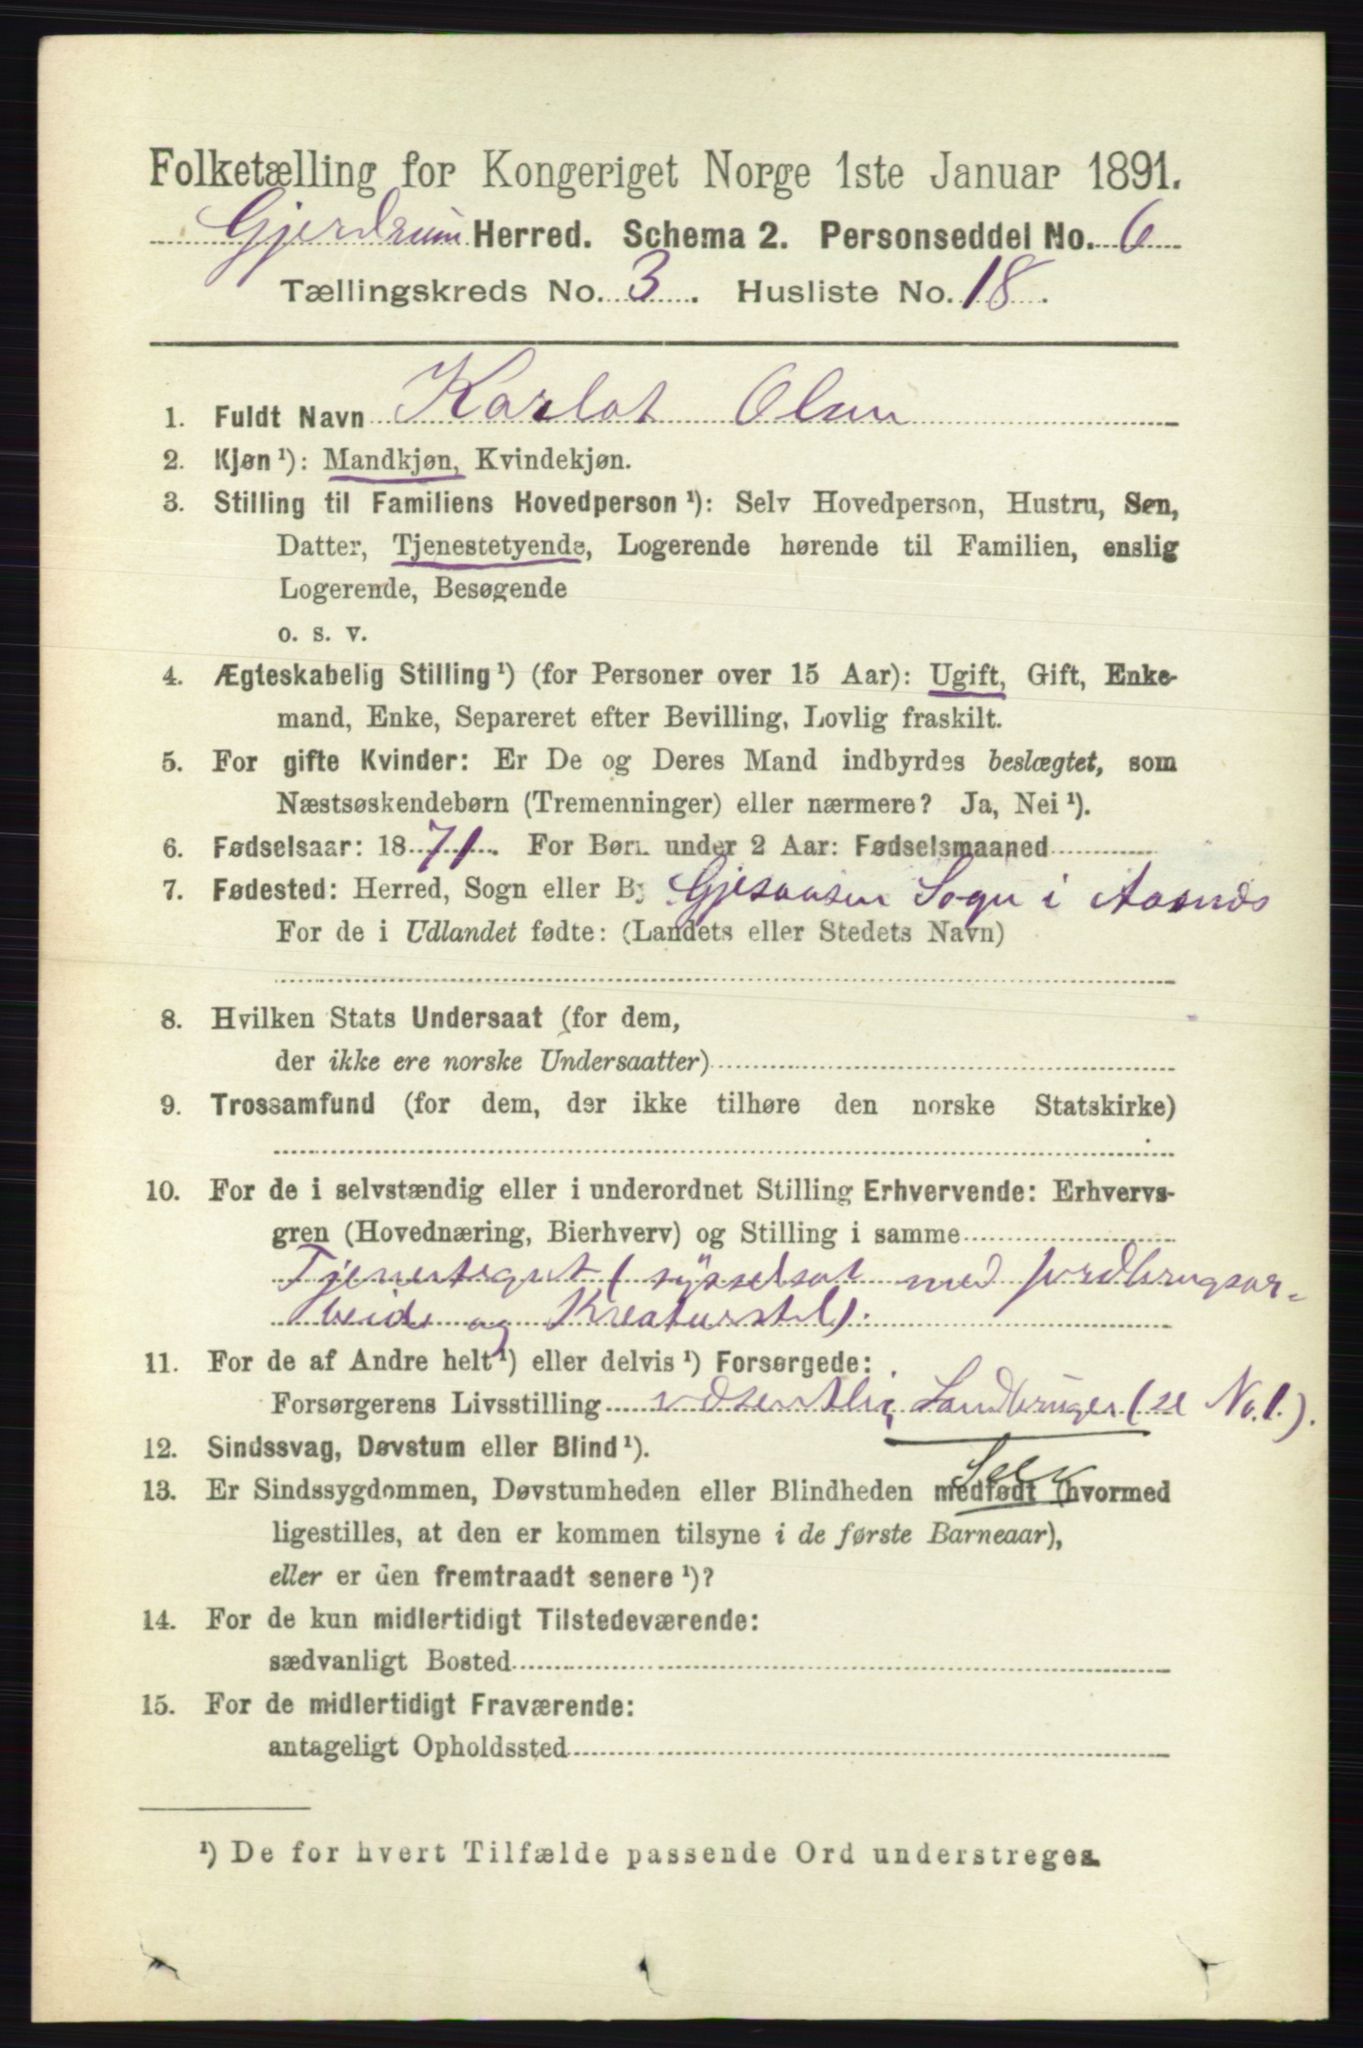 Folketælling for Kongeriget Norge 1ste Januar 1891.
Gjerdrum Herred. Schema 2. Personseddel No. 6
Tællingskreds No. 3. Husliste No. 18.
1. Fuldt Navn Karlot Olsen
2. Kjøn ¹): Mandkjøn, Kvindekjøn.
3. Stilling til Familiens Hovedperson ¹): Selv Hovedperson, Hustru, Søn,
Datter, Tjenestetyende, Logerende hørende til Familien, enslig
Logerende, Besøgende
o. s. v.
4. Ægteskabelig Stilling ¹) (for Personer over 15 Aar): Ugift, Gift, Enke-
mand, Enke, Separeret efter Bevilling, Lovlig fraskilt.
5. For gifte Kvinder: Er De og Deres Mand indbyrdes beslægtet, som
Næstsøskendebørn (Tremenninger) eller nærmere? Ja, Nei ¹).
6. Fødselsaar: 1871. For Børn under 2 Aar: Fødselsmaaned
7. Fødested: Herred, Sogn eller By Gjesaasen Sogn i Aasnds
For de i Udlandet fødte: (Landets eller Stedets Navn)
8. Hvilken Stats Undersaat (for dem,
der ikke ere norske Undersaatter)
9. Trossamfund (for dem, der ikke tilhøre den norske Statskirke)
10. For de i selvstændig eller i underordnet Stilling Erhvervende: Erhvervs-
gren (Hovednæring, Bierhverv) og Stilling i samme
Tjenertegut (sysselsat med Jordbrugsar-
beide og Kreaturstel).
11. For de af Andre helt ¹) eller delvis ¹) Forsørgede:
Forsørgerens Livsstilling væsentlig Landbruger (se No. 1.).
12. Sindssvag, Døvstum eller Blind ¹).
13. Er Sindssygdommen, Døvstumheden eller Blindheden medfødt (hvormed
ligestilles, at den er kommen tilsyne i de første Barneaar),
eller er den fremtraadt senere ¹)?
14. For de kun midlertidigt Tilstedeværende:
sædvanligt Bosted
15. For de midlertidigt Fraværende:
antageligt Opholdssted
¹) De for hvert Tilfælde passende Ord understreges.